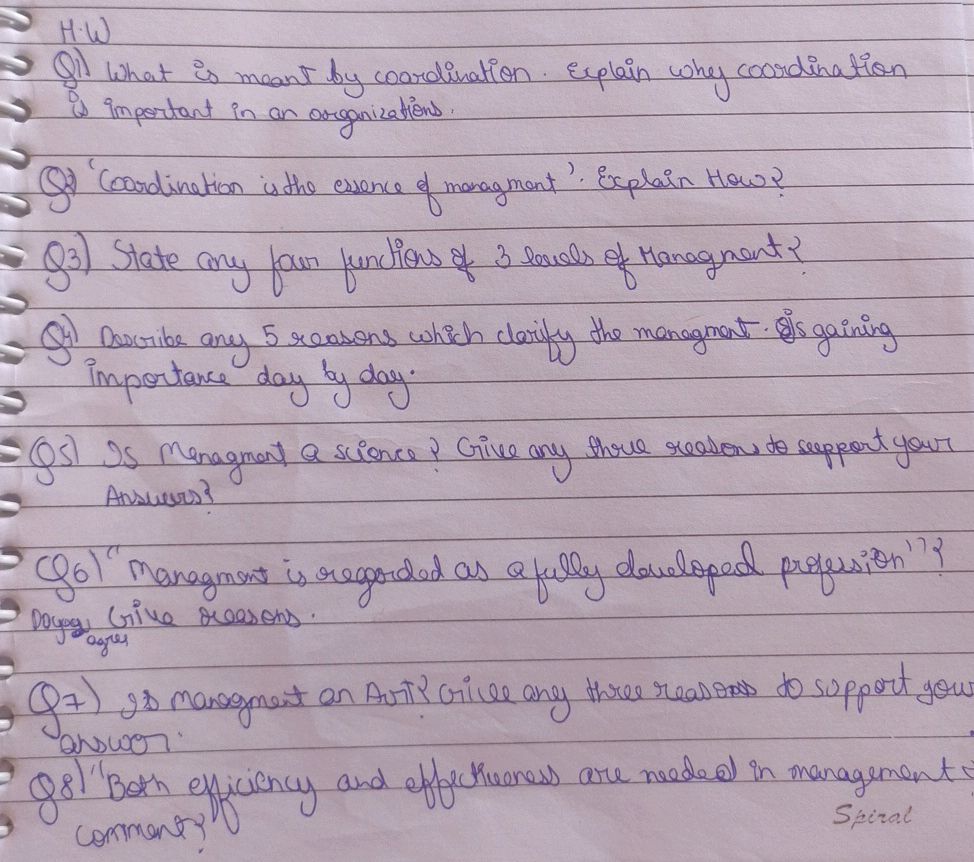 H.W
Q1) What is meant by coordination. Explain why coordination
is important in an organizations.
Q2) 'Coordination is the essence of managment'. Explain How?
Q3) State any four functions of 3 levels of Managment?
Q4) Describe any 5 reasons which clarify the managment. is gaining
importance day by day.
Q5) Is Managment a science? Give any three reasons to support your
Answers?
Q6) "Managment is regarded as a fully developed profession"?
Do you agree Give reasons.
Q7) Is managment an Art? Give any three reasons to support your
answer.
Q8) "Both efficiency and effectiveness are needed in management
comment?
Spiral